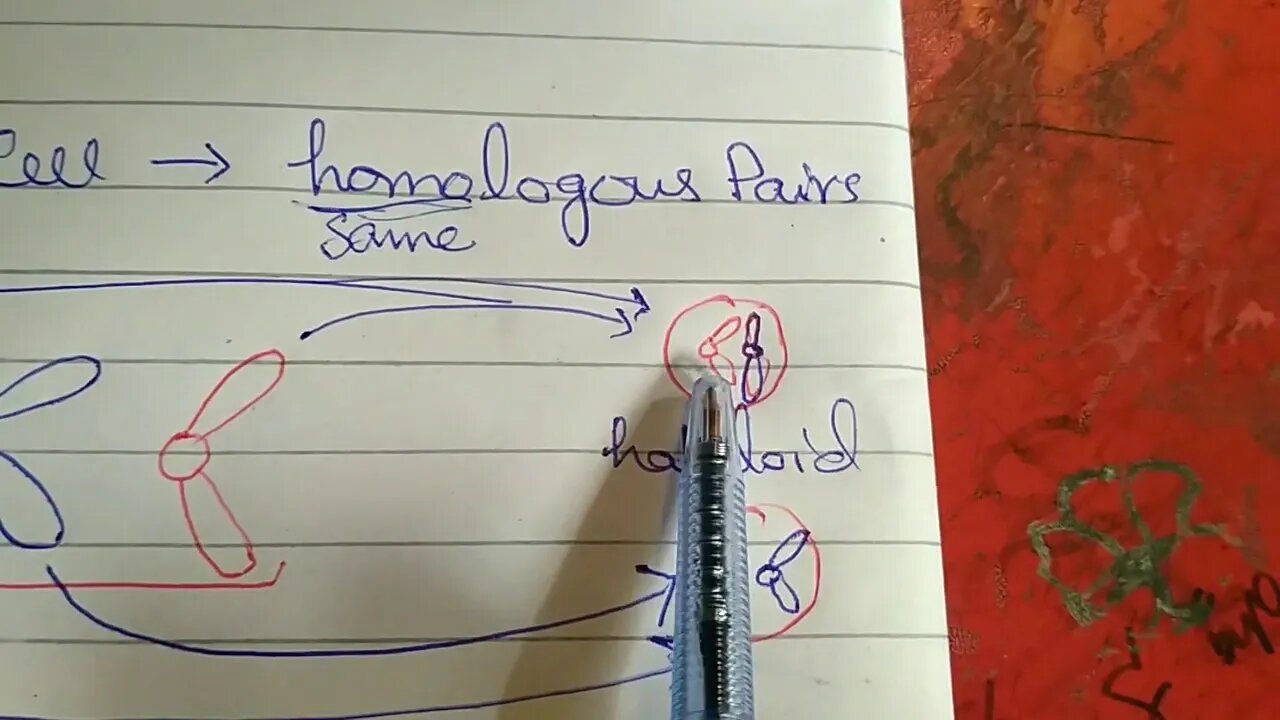 Cell → homologous Pairs
same
haploid